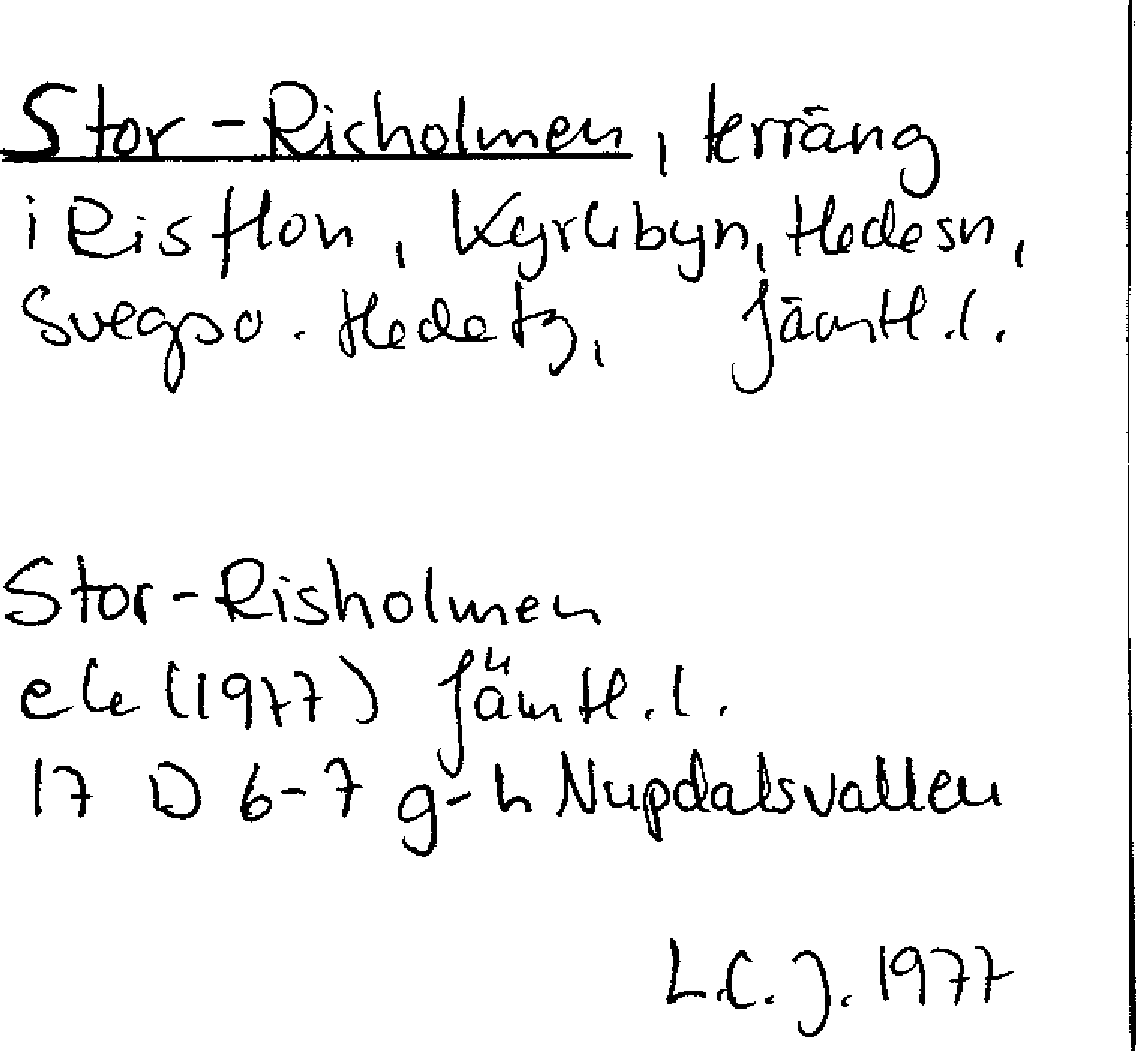 Stor-Risholmen, terräng
i Risflon, Kyrkbyn, Hede sn,
Svegs o. Hede tg, Jämtl.l.
Stor-Risholmen
ek (1977) Jämtl.l.
17 D 6-7 g-h Nupdalsvallen
L.C.J. 1977